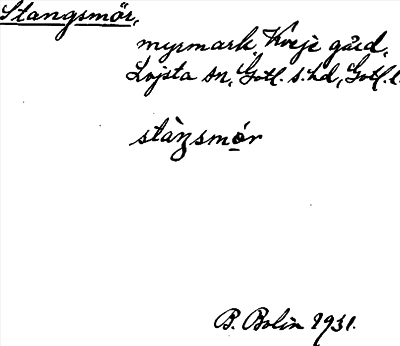 Stangsmör,
myrmark, Kveje gård,
Lojsta sn, Gotl. s. hd, Gotl. l.
stàŋsmo̱r
B. Bolin 1931.